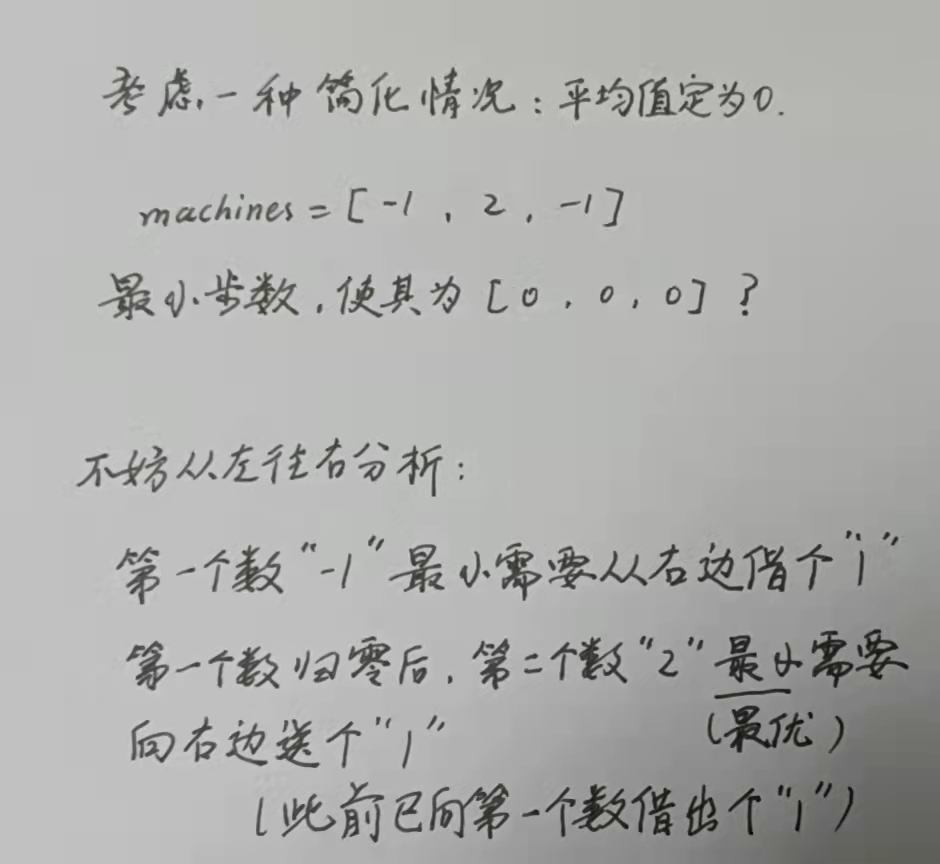 考虑一种简化情况：平均值定为0.
machines = [ -1 , 2 , -1 ]
最小步数，使其为 [ 0 , 0 , 0 ] ?
不妨从左往右分析：
第一个数“-1”最小需要从右边借个“1”
第一个数归零后，第二个数“2”最小需要
向右边送个“1”
(最优)
(此前已向第一个数借出个“1”)